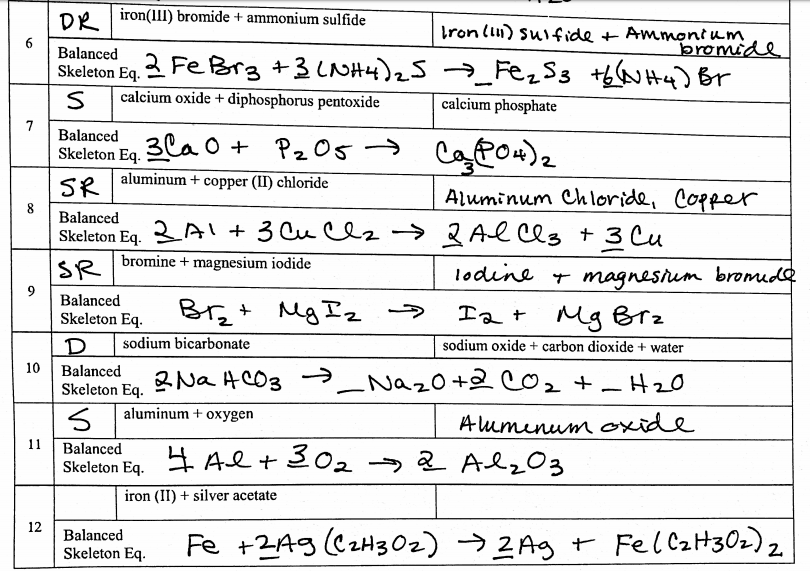 6
DR iron(III) bromide + ammonium sulfide Iron (III) sulfide + Ammonium bromide
Balanced Skeleton Eq. 2 FeBr3 + 3 (NH4)2S → _Fe2S3 + 6(NH4)Br
7
S calcium oxide + diphosphorus pentoxide calcium phosphate
Balanced Skeleton Eq. 3CaO + P2O5 → Ca3(PO4)2
8
SR aluminum + copper (II) chloride Aluminum Chloride, Copper
Balanced Skeleton Eq. 2 Al + 3 CuCl2 → 2 AlCl3 + 3 Cu
9
SR bromine + magnesium iodide Iodine + magnesium bromide
Balanced Skeleton Eq. Br2 + MgI2 → I2 + MgBr2
10
D sodium bicarbonate sodium oxide + carbon dioxide + water
Balanced Skeleton Eq. 2 NaHCO3 → _Na2O + 2 CO2 + _ H2O
11
S aluminum + oxygen Alumunum oxide
Balanced Skeleton Eq. 4 Al + 3 O2 → 2 Al2O3
12
iron (II) + silver acetate
Balanced Skeleton Eq. Fe + 2Ag(C2H3O2) → 2Ag + Fe(C2H3O2)2